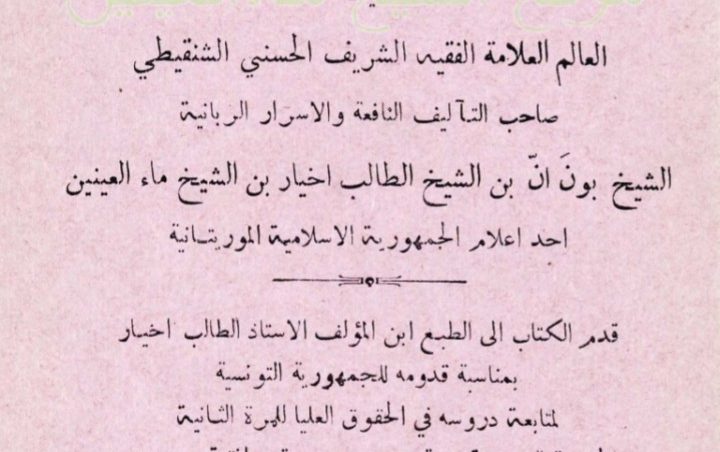 العالم العلامة الفقيه الشريف الحسني الشنقيطي
صاحب التآليف النافعة والاسرار الربانية
الشيخ بونَ انّ بن الشيخ الطالب اخيار بن الشيخ ماء العينين
احد اعلام الجمهورية الاسلامية الموريتانية
قدم الكتاب الى الطبع ابن المؤلف الاستاذ الطالب اخيار
بمناسبة قدومه للجمهورية التونسية
لمتابعة دروسه في الحقوق العليا للمرة الثانية